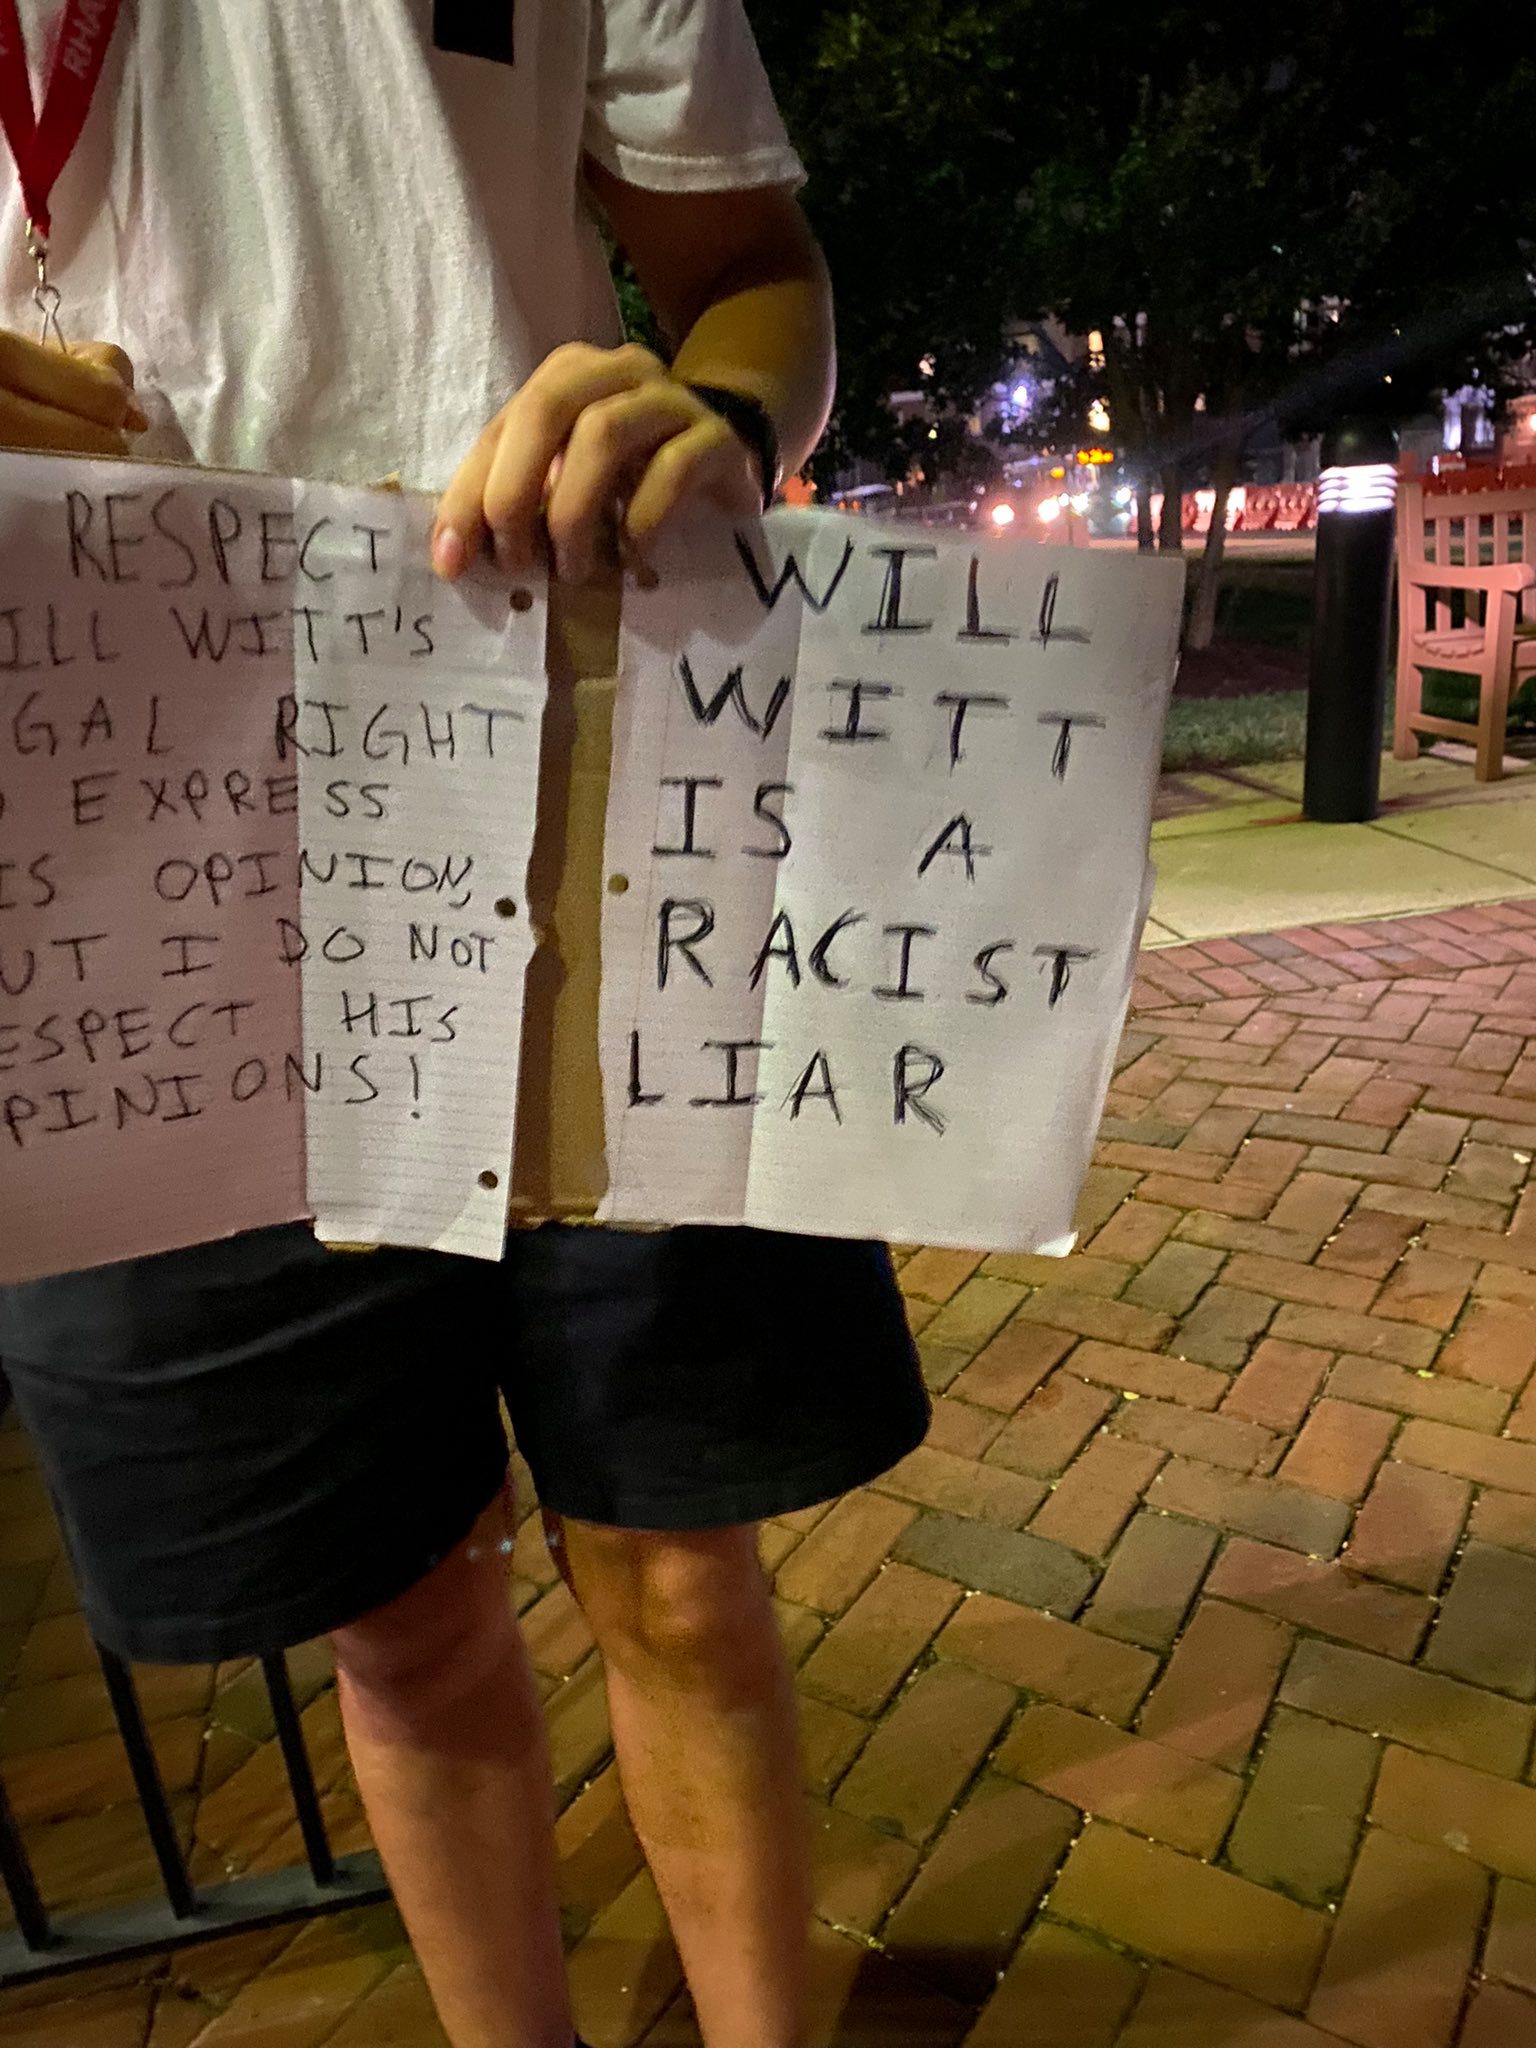 RHA
RESPECT
ILL WITT'S
GAL RIGHT
EXPRESS
IS OPINION,
UT I DO NOT
ESPECT HIS
PINIONS!
WILL
WITT
IS A
RACIST
LIAR